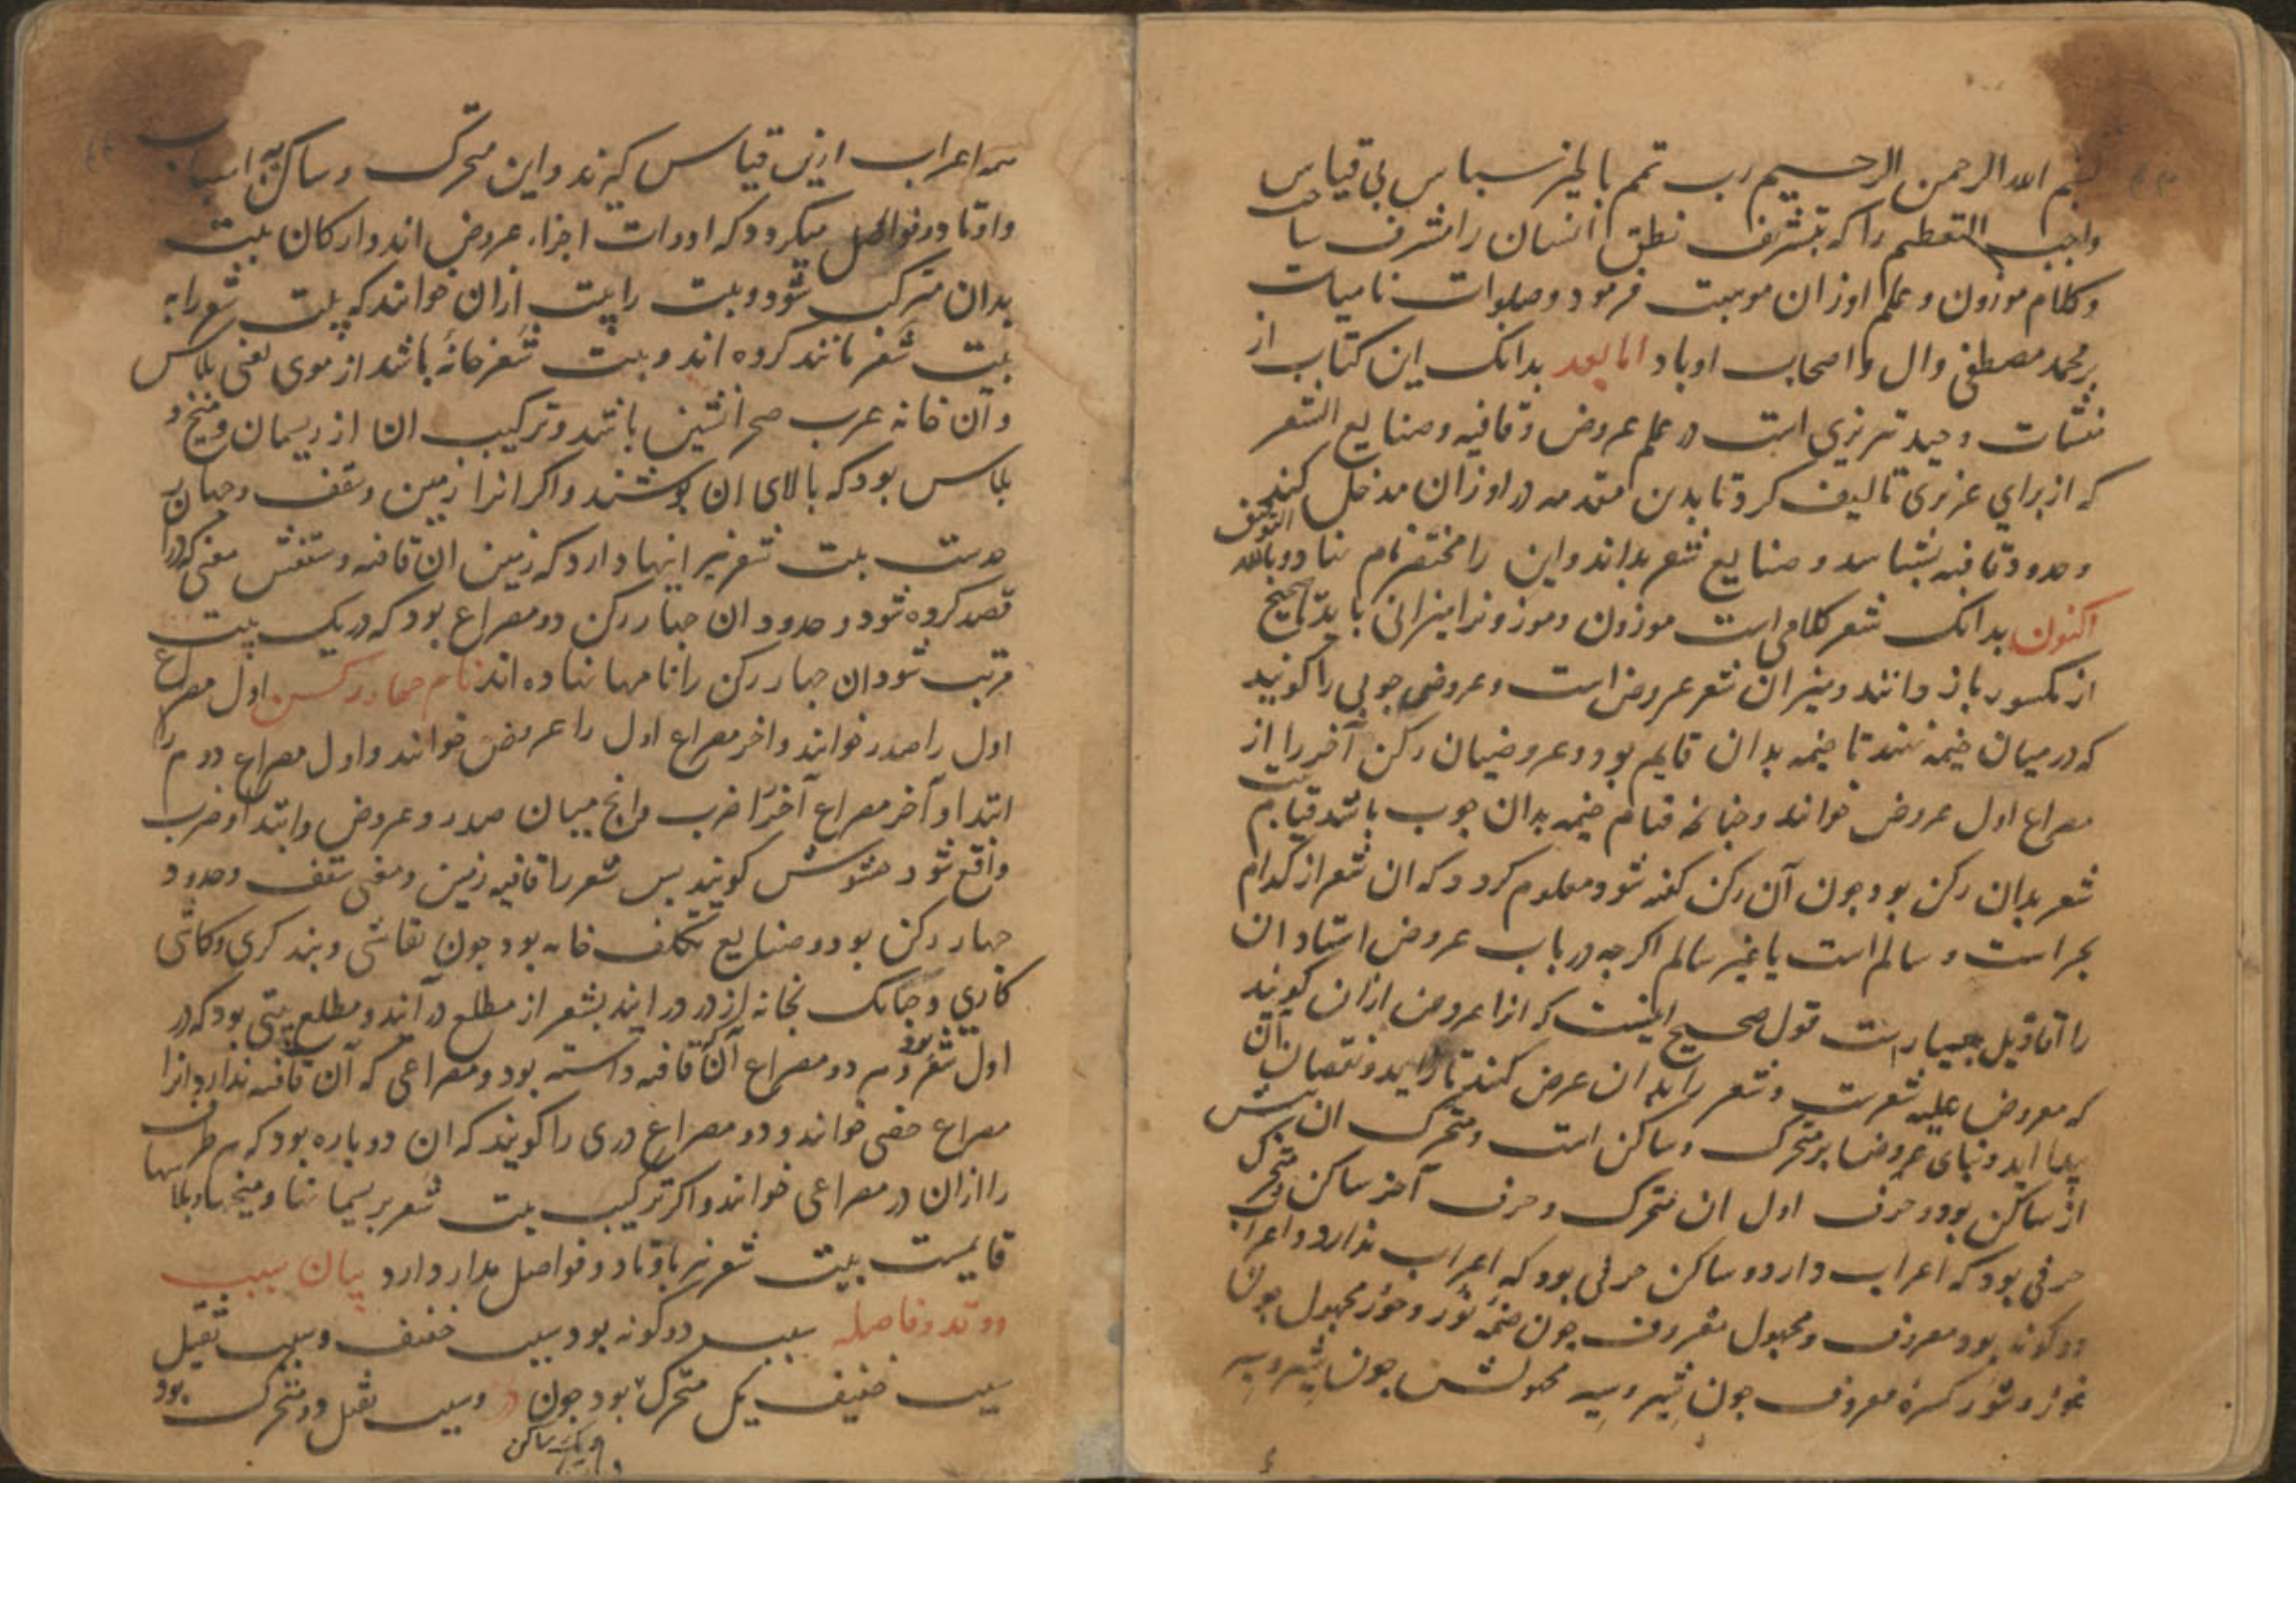 بسم الله الرحمن الرحیم رب تمم بالخیر سپاس بی قیاس
واجب التعظیم را که بتشریف نطق انسان را مشرف ساخت
وکلام موزون وعلم اوزان موهبت فرمود وصلوات نامیات
بر محمد مصطفی وال واصحاب او باد اما بعد بدانک این کتاب از
منشآت وحید تبریزی است در علم عروض وقافیه وصنایع الشعر
که از برای عزیزی تالیف کرد تا بدین مقدمه در اوزان مدخل کند
وحدود قافیه بشناسد وصنایع شعر بداند واین را مختصر نام نهاد وبالله التوفیق
اکنون بدانک شعر کلامی است موزون وموزونرا میزانی باید تا صحیح
از مکسور باز دانند ومیزان شعر عروض است وعروض چوبی را کویند
که در میان خیمه نهند تا خیمه بدان قایم بود وعروضیان رکن آخر را از
مصراع اول عروض خوانند وچنانکه قیام خیمه بدان چوب باشد قیام بیت
شعر بدان رکن بود چون آن رکن کفته شود معلوم کردد که ان شعر از کدام
بحر است و سالم است یا غیر سالم اکرچه در باب عروض استادان
را اقاویل بسیار است قول صحیح اینست که انرا عروض ازان کویند
که معروض علیه شعرست وشعر را بدان عرض کنند تا زاید ونقصان آن
پیدا اید وبنای عروض بر متحرک وساکن است ومتحرک ان بیش
از ساکن بود وحرف اول ان متحرک وحرف آخر ساکن ومتحرک
حرفی بود که اعراب دارد وساکن حرفی بود که اعراب ندارد واعراب
دوکونه بود معروف ومجهول معروف چون ضمهٔ نور وحور مجهول چون
غور وشور کسرهٔ معروف چون شیر وسیر مجهولش چون شیر وسیر
همه اعراب ازین قیاس کیرند واین متحرک وساکن اسباب
واوتاد وفواصل میکردد که ادوات اجزاء عروض اند وارکان بیت
بدان مترکب شود وبیت را بیت ازان خوانند که بیت شعر را به
بیت شعر مانند کرده اند وبیت شعر خانهٔ باشد از موی یعنی پلاس
وآن خانه عرب صحرانشین باشد وترکیب ان از ریسمان ومیخ و
پلاس بود که بالای ان پوشند واکر انرا زمین وسقف وچهار
حدست بیت شعر نیز اینها دارد که زمین ان قافیه وسقفش معنی که درا
قصد کرده شود وحدود ان چهار رکن دو مصراع بود که در یک بیت
مرتب شود وان چهار رکن را نامها نهاده اند نام چهار رکن اول مصراع
اول را صدر خوانند واخر مصراع اول را عروض خوانند واول مصراع دوم را
ابتدا وآخر مصراع آخر را ضرب وانچ میان صدر وعروض وابتدا وضرب
واقع شود حشوش کویند پس شعر را قافیه زمین ومعنی سقف وحدود
چهار رکن بود وصنایع تکلف خانه بود چون نقاشی وبندکری وکاشی
کاری وچنانک بخانه از در درایند بشعر از مطلع درآیند ومطلع بیتی بود که در
اول شعر بود وهر دو مصراع آن قافیه داشته بود ومصراعی که آن قافیه ندارد انرا
مصراع خفی خوانند ودو مصراع دری را کویند که ان دوپاره بود که هر طرف
را ازان در مصراعی خوانند واکر ترکیب بیت شعر بریسمانها ومیخها وپلاسها
قایمست بیت شعر نیز باوتاد وفواصل مدار دارد بیان سبب
ووتد وفاصله سبب دوکونه بود سبب خفیف وسبب ثقیل
سبب خفیف یکی متحرک بود ویکی ساکن چون در وسبب ثقیل دو متحرک بود